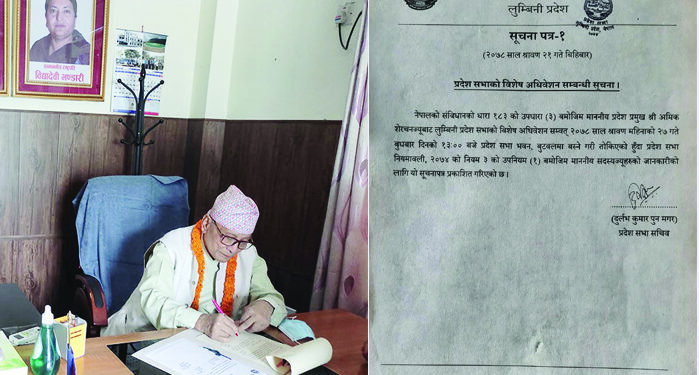 सम्माननीय राष्ट्रपति
विद्यादेवी भण्डारी
लुम्बिनी प्रदेश
सूचना पत्र-१
(२०७८ साल श्रावण २१ गते बिहिबार)
प्रदेश सभाको विशेष अधिवेशन सम्बन्धी सूचना ।
नेपालको संविधानको धारा १८३ को उपधारा (३) बमोजिम माननीय प्रदेश प्रमुख श्री अमिक
शेरचनज्यूबाट लुम्बिनी प्रदेश सभाको विशेष अधिवेशन सम्वत् २०७८ साल श्रावण महिनाको २७ गते
बुधबार दिनको १३:०० बजे प्रदेश सभा भवन, बुटवलमा बस्ने गरी तोकिएको हुँदा प्रदेश सभा
नियमावली, २०७४ को नियम ३ को उपनियम (१) बमोजिम माननीय सदस्यज्यूहरुको जानकारीको
लागि यो सूचनापत्र प्रकाशित गरिएको छ ।
(दुर्लभ कुमार पुन मगर)
प्रदेश सभा सचिव